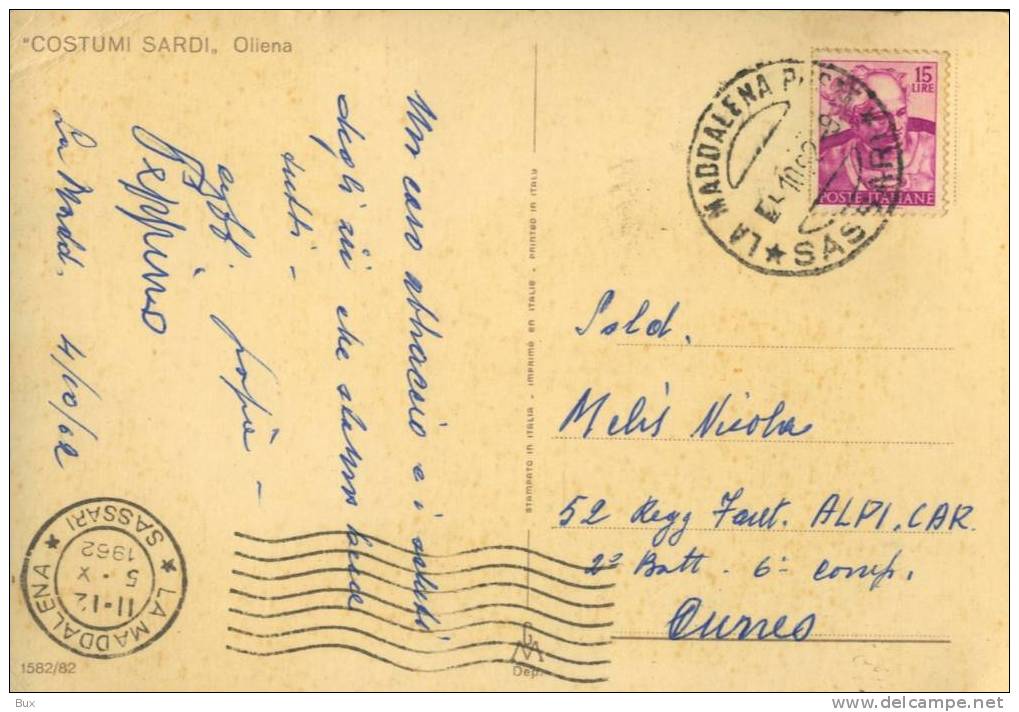 "COSTUMI SARDI„ Oliena
Un caro abbraccio e i saluti
degli zii che stanno bene
tutti -
aff.
Peppino
La Madd. 4/10/62
STAMPATO IN ITALIA - IMPRIMÉ EN ITALIE - PRINTED IN ITALY
15
LIRE
POSTE ITALIANE
LA MADDALENA
★ SASSARI
Sold.
Melis Nicola
52 Regg Fant. ALPI. CAR
2° Batt - 6° comp.
Cuneo
★ LA MADDALENA ★
SASSARI
11-12
5 · X
1962
1582/82
Dep.
Bux
delcampe.net